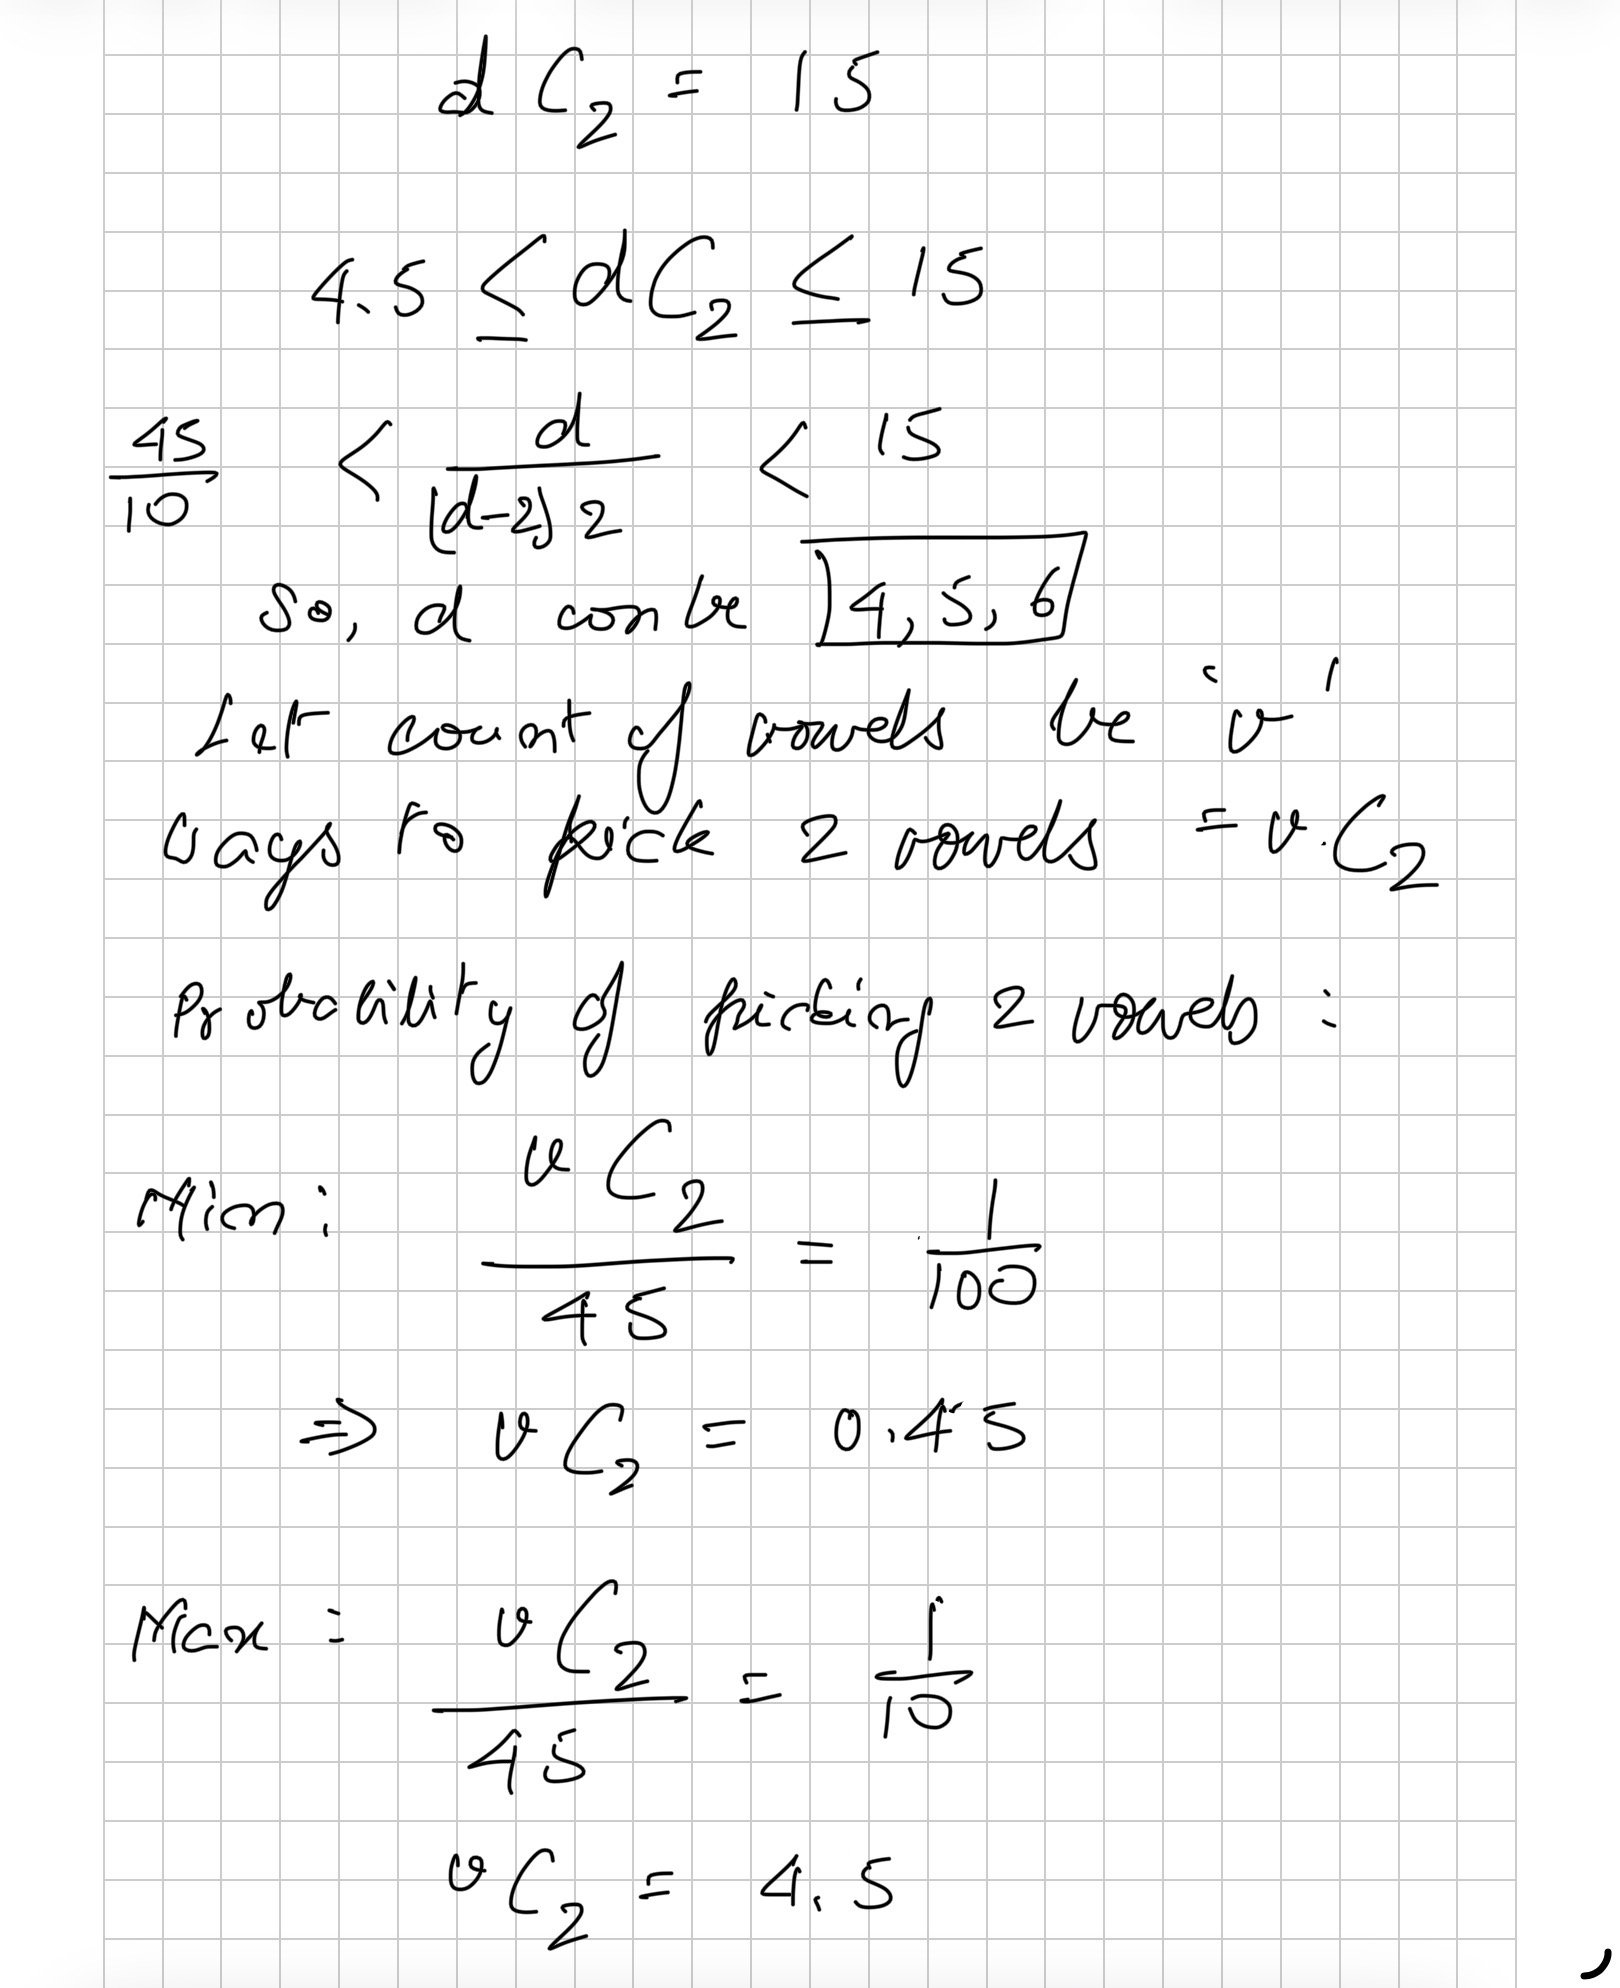 dC₂ = 15
4.5 ≤ dC₂ ≤ 15
45/10 < d/((d-2) 2) < 15
So, d can be 4, 5, 6
Let count of vowels be 'v'
Ways to pick 2 vowels = v.C₂
Probability of picking 2 vowels :
Min : vC₂/45 = 1/100
⇒ vC₂ = 0.45
Max : vC₂/45 = 1/10
vC₂ = 4.5